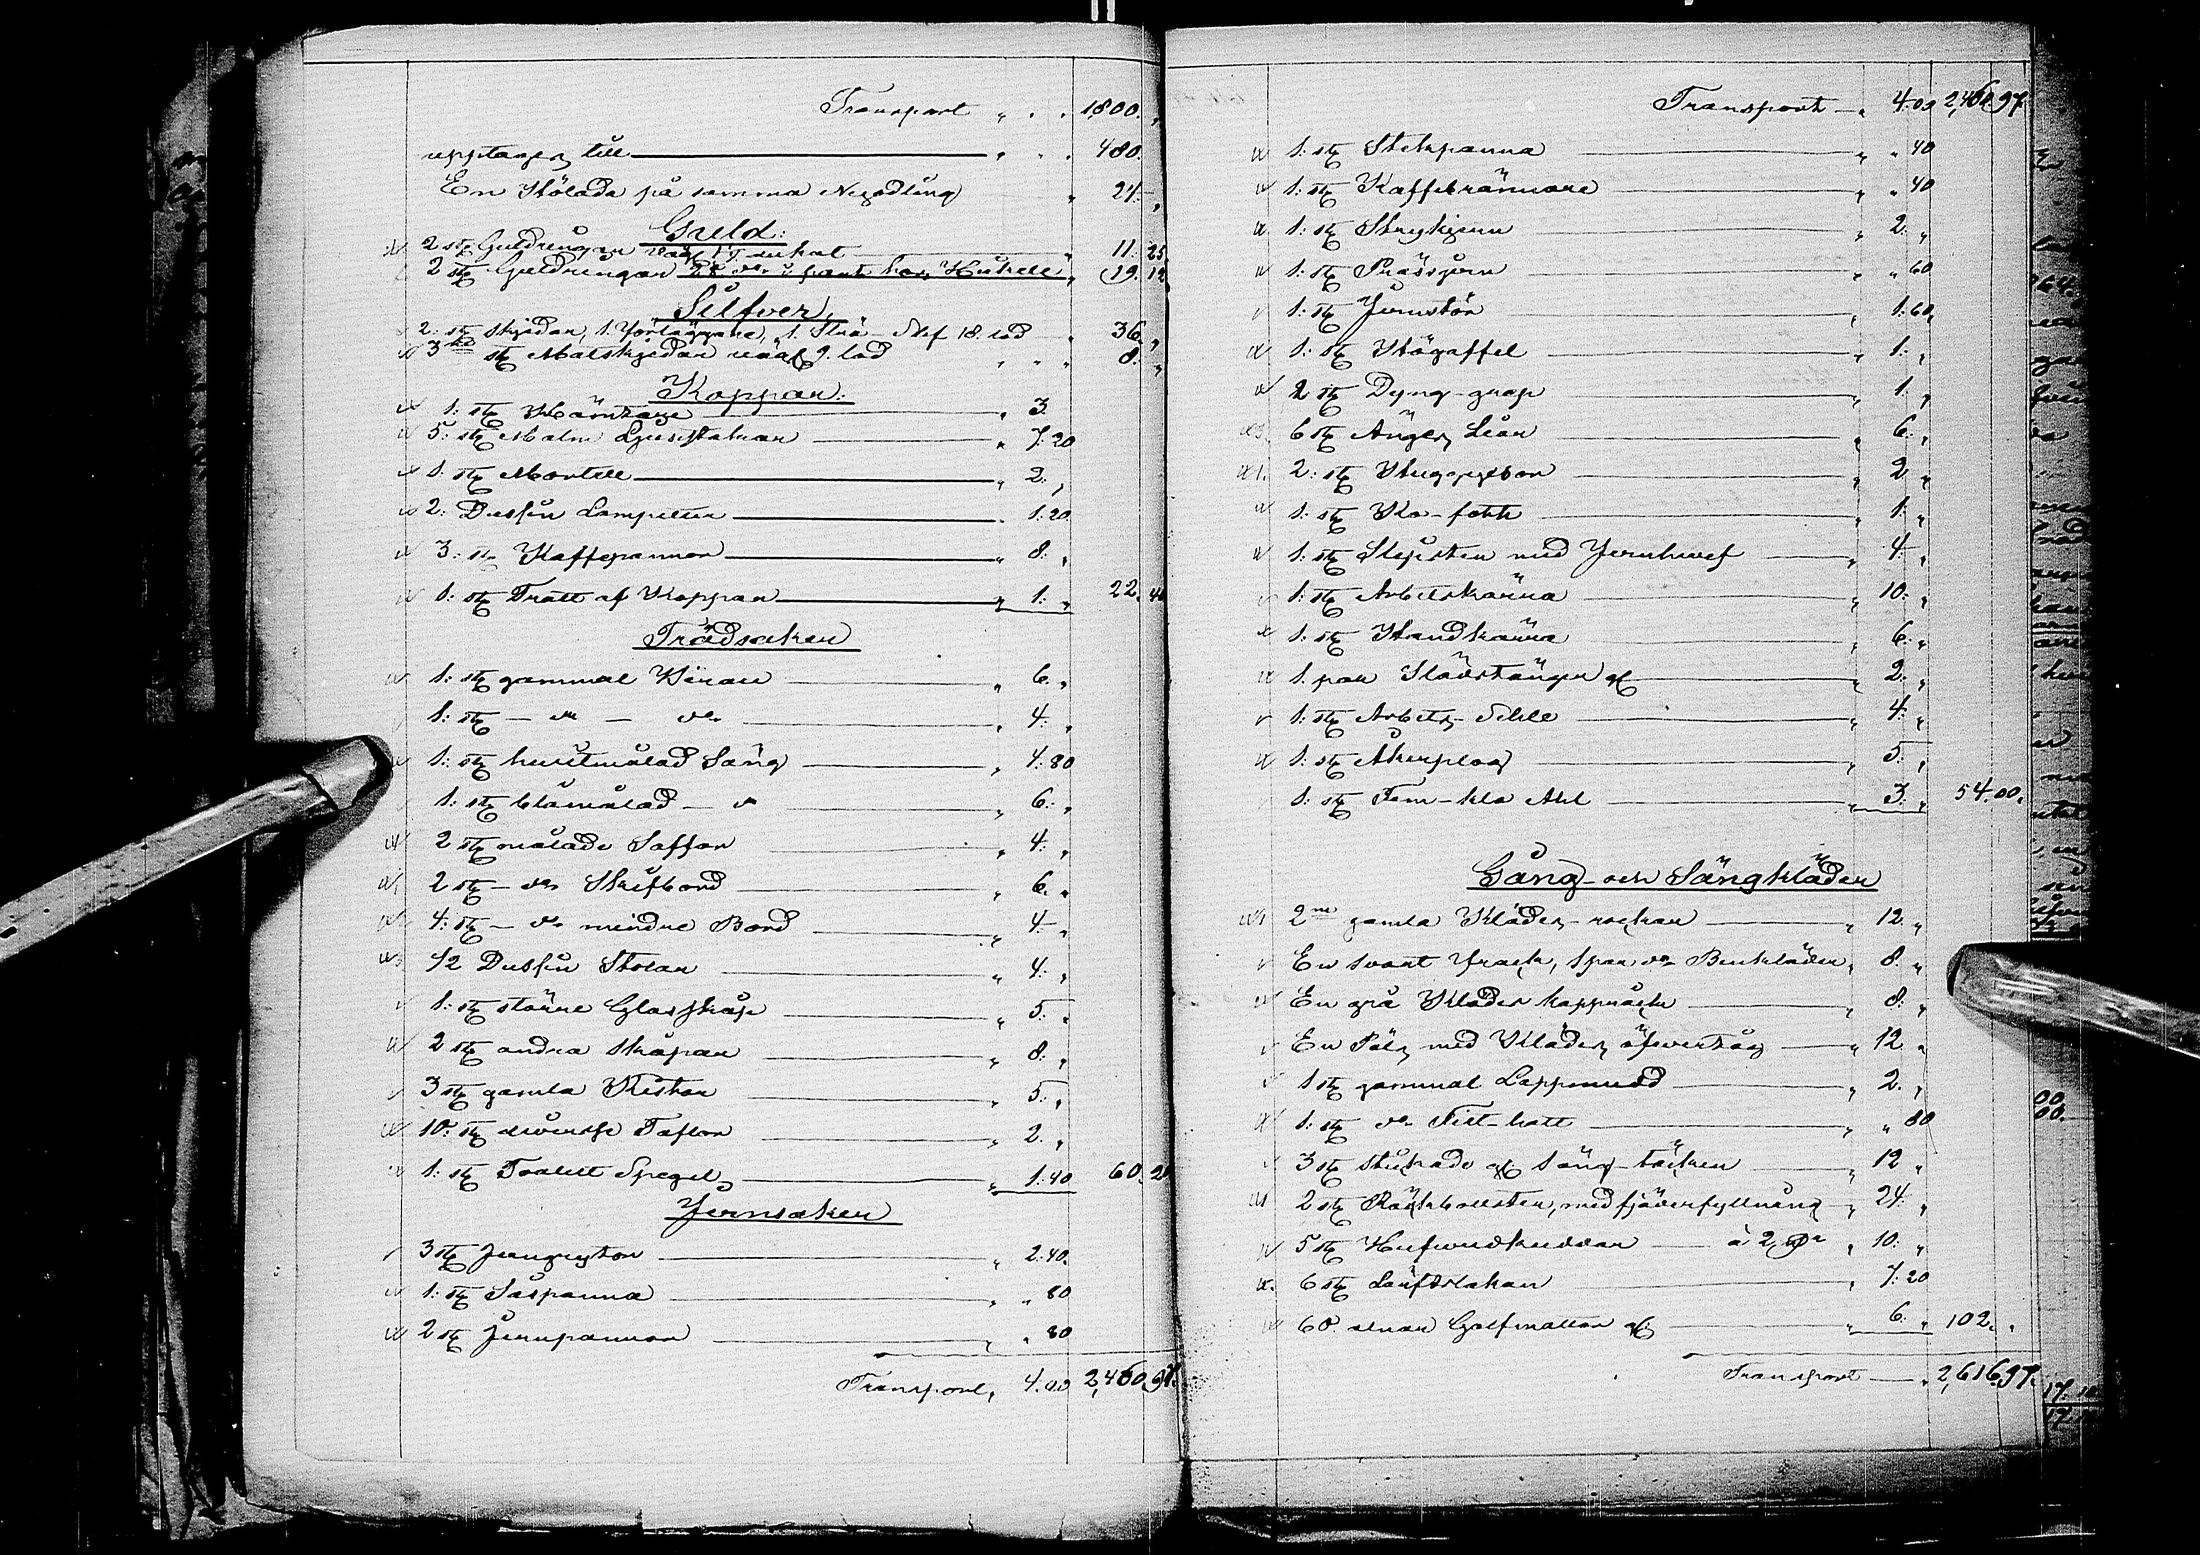 Transport " " " 1,800. "
upptages till " " " 480. "
En Hölada på samma Negodling " 24. "
Guld:
2 stg Guldringar väg 1 " 11. 25
2 stg Guldringar 2 d:o i pant hos " (19. 12
Silfver.
2: stg skjedar, 1 Förläggare, 1 Strö-skef 18 lod " 36. "
3 stg Matskjedar väg 9. lod " " " 8. "
Koppar:
1: stg " 3.
5: stg Malm Ljusstakar " 7:20
1: stg Mortell " 2: "
2: Dussin Lampetter " 1:20
3: st Kaffepannor " 8: "
1: stg Tratt af Koppar " 1: " 22. 40
Trädsaker
1: stg gammal Byrau " 6. "
1: stg — d:o — d:o " 4. "
1: stg hvitmålad Säng " 4:80
1: stg blåmålad — d:o " 6: "
2 stg målade Soffor " 4: "
2 stg — d:o Skrifbord " 6. "
4: stg — d:o mindre Bord " 4. "
1/2 Dussin Stolar " 4: "
1: stg större Glasskåp " 5: "
2 stg andra skåpar " 8: "
3 stg gamla Kistor " 5: "
10: stg diverse Taflor " 2. "
1: stg Toalett Spegel " 1:40 60. 20
Jernsaker
3 stg Jerngrytor " 2:40.
1: stg Såspanna " " 80
2 stg Jernpannor " " 80
Transport, 4.00 2,460.97.
Transport " 4:00 2,460.97.
1: stg Stekpanna " " 40
1: stg Kaffebrännare " " 40
1: stg Strykjern " 2: "
1: stg Prässjern " " 60
1: stg Jernstör " 1:60,
1: stg Högaffel " 1: "
2 stg Dyng-grep " 1: "
6 stg Änges Liar " 6: "
2: stg Skuggyxor " 2 "
1: stg Ko-fott " 1: "
1: stg Slipsten med Jernhvef " 4: "
1: stg Arbetskärra " 10: "
1: stg Handkärra " 6: "
1. par Slädstänger " 2: "
1: stg Arbets-Sele " 4: "
1: stg Åkerplog " 5: "
1: stg Fem-kla Åhl " 3: " 54.00.
Gång- och Sängkläder
2ne gamla Klädes-rockar " 12 "
En svart Frack, 1 par d:o Benkläder, 8: "
En grå Klädes kapprock " 8: "
En Päls med Klädes öfvertåg " 12 "
1 stg gammal Lappmudd " 2. "
1: stg d:o Filt-hatt " " 80
3 stg stickade säng-täcken " 12 "
2 stg Räckbolster, med fjäderfyllning " 24 "
5 stg Hufvudkuddar — à 2 " 10: "
6 stg Lärftslakan " 7:20
60. alnar Golfmattor " 6. " 102. "
Transport — " 2,616.97.